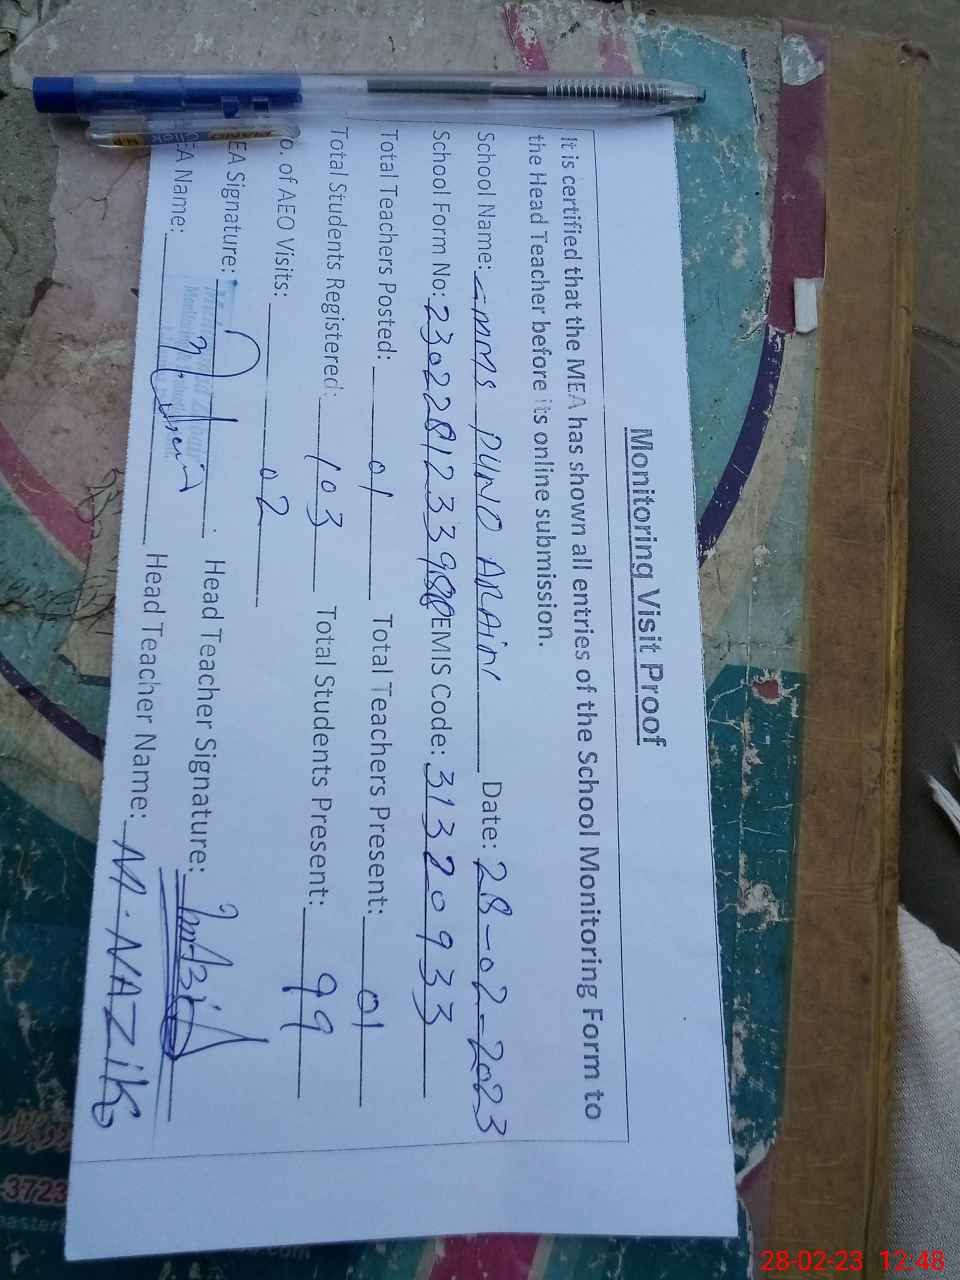 Monitoring Visit Proof
It is certified that the MEA has shown all entries of the School Monitoring Form to
the Head Teacher before its online submission.
School Name: GMMS PUNO ARAIN Date: 28-02-2023
School Form No: EMIS Code: 31320933
Total Teachers Posted: 01 Total Teachers Present: 01
Total Students Registered: 103 Total Students Present: 99
o. of AEO Visits: 02
EA Signature: Head Teacher Signature:
EA Name: Head Teacher Name: M. NAZIK
PIANO
Click
-3723
28-02-23 12:48